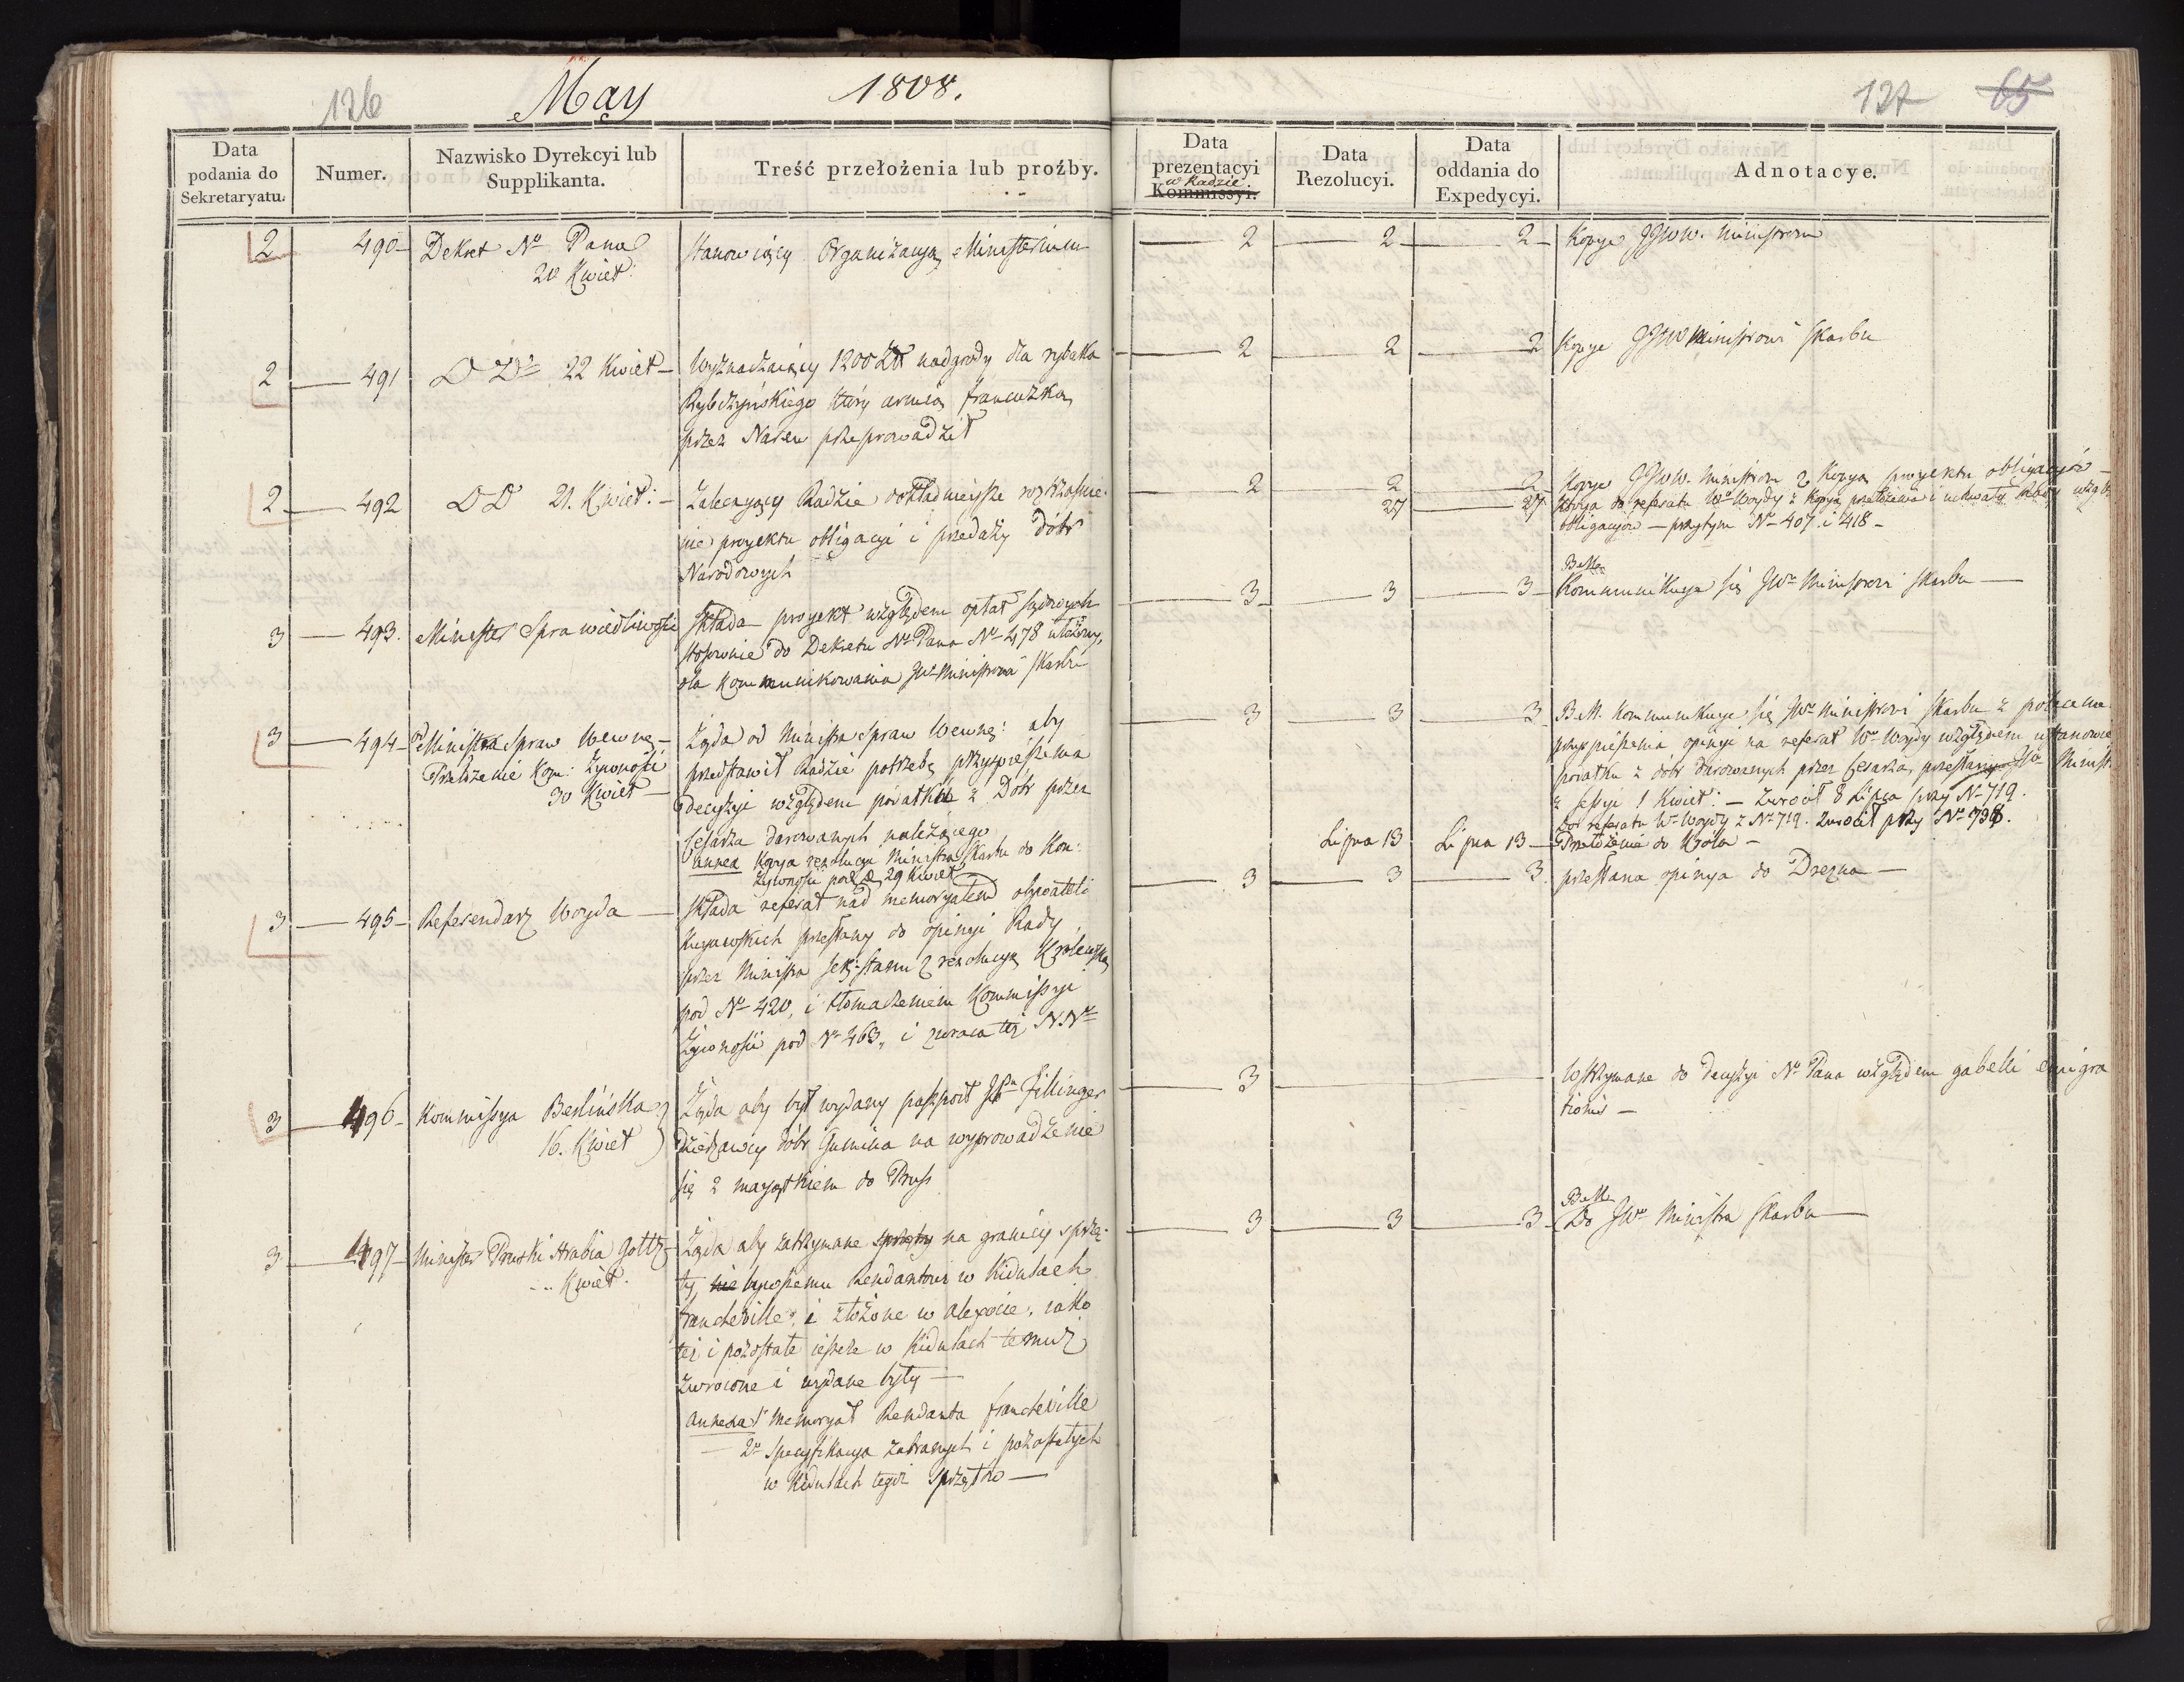 126 May 1808.
Data podania do Sekretaryatu.
Numer.
Nazwisko Dyrekcyi lub Supplikanta.
Treść przełożenia lub proźby.
2 490 Dekret No Pana
20 Kwiet:
stanowiący Organizacyą Ministerium
2 491 D Do 22 Kwiet
Wyznaczaiący 1200 Zł nadgrody dla rybaka
Rybczyńskiego który armią francuzką
przez Narew przeprowadził
2 492 D D 21. Kwiet:
Zalecaiący Radzie dokładnieysze rozstrząśnie-
nie proyektu obligacyi i przedaży dóbr
Narodowych
3 493. Minister Sprawiedliwości
składa proyekt względem opłat sądowych
stosownie do Dekretu No Pana No 478 ułożony,
dla kommunikowania JWo Ministrowi Skarbu
3 494 od Ministra Spraw Wewnę
Przełożenie Kom: Żywności
30 Kwiet
Żąda od Ministra Spraw Wewnę: aby
przedstawił Radzie potrzebę przyspieszenia
decyzyi względem podatku z Dóbr przez
Cesarza darowanych należącego
annexa Kopya rezolucyi Ministra Skarbu do Kom:
Żywności pod D 29 Kwiet
3 495 Referendarz Woyda
składa referat nad memoryałem obywateli
Kujawskich przesłany do opinyi Rady
przez Ministra Sekr: Stanu z rezolucyą Królewską
pod No 420, i tłomaczeniem Kommissyi
Żywności pod No 463, i zwraca też N.No
3 496 Kommissya Berlińska
16. Kwiet
Żąda aby był wydany paszport JPn Fillinger
dzierżawcy dóbr Gumina na wyprowadzenie
się z maiątkiem do Pruss
3 497 Minister Pruski Hrabia Goltz
... Kwiet.
Żąda aby zatrzymane sprzęty na granicy sprzę-
ty, nie byłemu Rendantowi w Kidulach
francheville, i złożone w Alexocie, iako
też i pozostałe ieszcze w Kidulach temuż
zwrocone i wydane były
annexa 1o Memoryał Rendanta francheville
2o Specyfikacya zabranych i pozostałych
w Kidulach tegoż sprzętów
127 65
Data prezentacyi w Radzie Kommissyi.
Data Rezolucyi.
Data oddania do Expedycyi.
Adnotacye.
2 2 2 Kopye JJWW. Ministrom
2 2 2 Kopya JJWW Ministrowi Skarbu
2 2 2 Kopye JJWW. Ministrom z Kopyą proyektu obligacyów
27 27 Kopya do referatu Wo Woydy z kopyą przełożenia i uchwały Rady wzglę
obligacyów przytym No 407 i 418
3 3 3 BM
Kommunikuje się JWo Ministrowi Skarbu
3 3 3 B.M. Kommunikuje się JWo Ministrowi Skarbu z poleceniem
przyspieszenia opinyi na referat Wo Woydy względem ustanowie
podatku z dóbr darowanych przez Cesarza, przesłany JWo Minist.
z sessyi 1 Kwiet: Zwrócił 8 Lipca przy No 719.
do referatu Wo Woydy z No 719. Zwrócił przy No 738.
Lipca 13 Lipca 13 Przełożenie do Króla
3 3 3. przesłana opinya do Drezna
3 Wstrzymane do decyzyi No Pana względem gabelli emigra
tionis
3 3 3 BM
Do JWo Ministra Skarbu